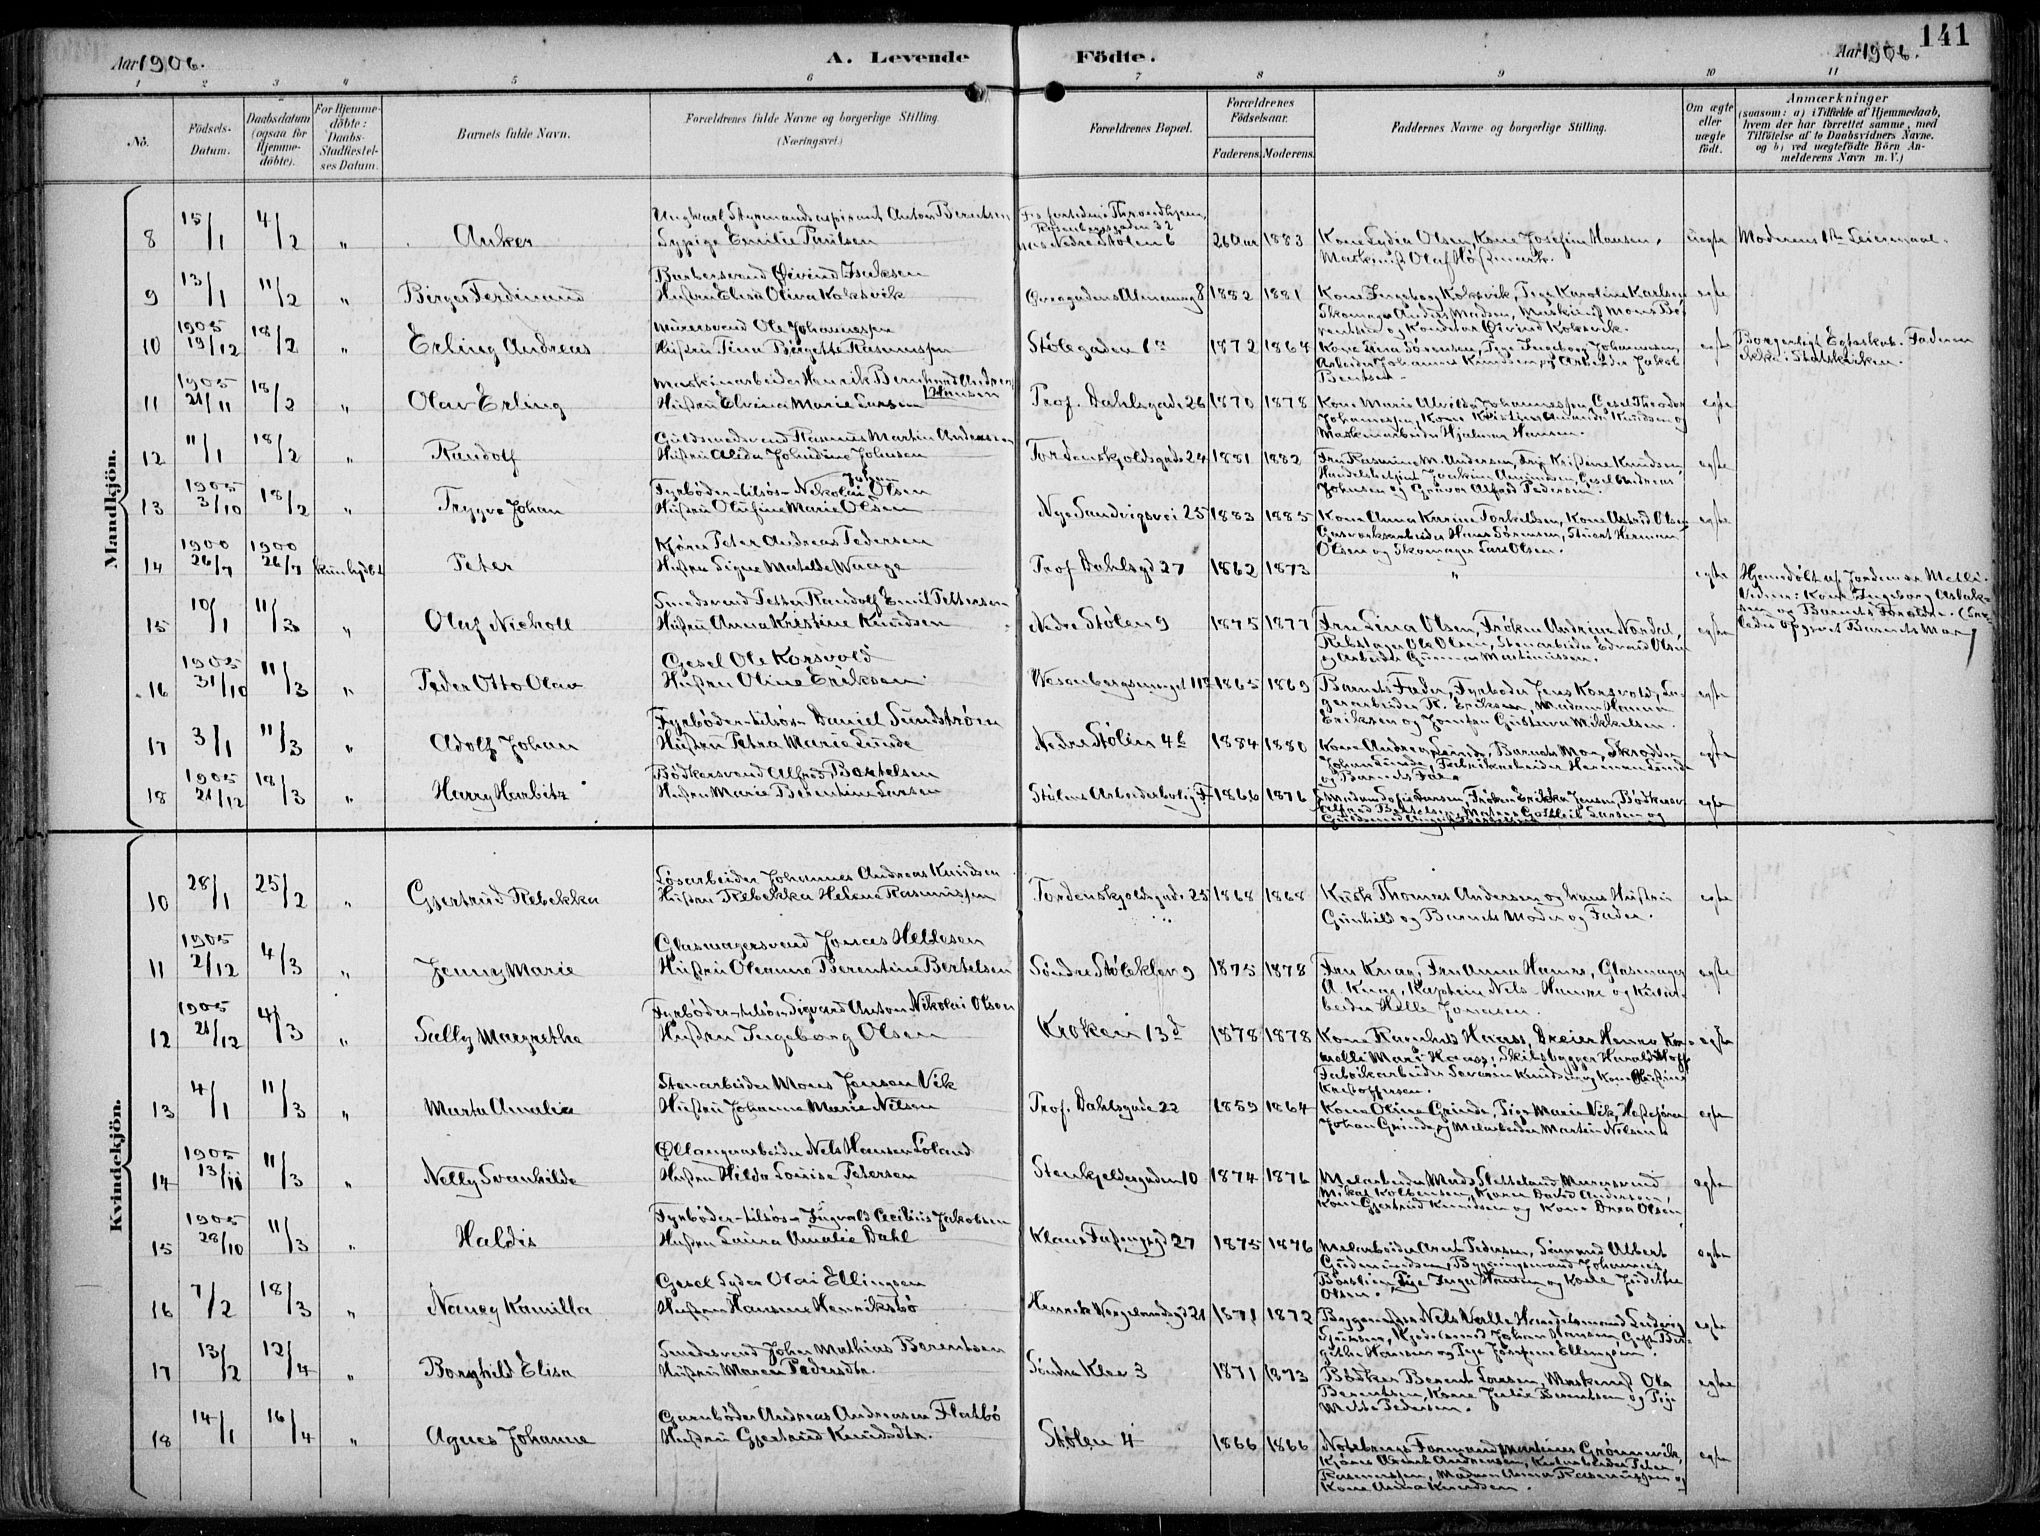 Aar 1906.
A. Levende
Födte.
Aar 1906.
141
1 2 3 4 5 6 7 8 9 10 11
No.
Födsels-Datum.
Daabsdatum (ogsaa for Hjemme-döbte).
For Hjemme-döbte: Daabs-Stadfæstel-ses Datum.
Barnets fulde Navn.
Forældrenes fulde Navne og borgerlige Stilling. (Næringsvei.)
Forældrenes Bopæl.
Forældrenes Födselsaar.
Faderens. Moderens.
Faddernes Navne og borgerlige Stilling.
Om ægte eller uægte födt.
Anmærkninger
(saasom: a) i Tilfælde af Hjemmedaab, hvem der har forrettet samme, med Tilföielse af to Daabsvidners Navne, og b) ved uægtefödte Börn An-melderens Navn m. V.)
Mandkjön.
8 15/1 4/2 " Anker
Ungkarl Styrmandsaspirant Anton Berntsen
Sypige Emilie Paulsen
Nedre Stølen 6
26 Aar 1883
Kone Lydia Olsen, Kone Josefin Hansen,
Maskinist Olaf
uægte
Moderens 1ste Leiermaal.
9 13/1 11/2 " Birger Ferdinand
Barbersvend Øivind Isaksen
Hustru Elisa Oliva Koksvik
Øvregadens Almenning 8 1882 1881
Kone Ingeborg Koksvik, Pige Karoline Karlsen
Skomager Anders Madsen, Maskinist Mons Be-
rntsen og Konditor Øivind Koksvik.
egte
10 1905 19/12 18/2 " Erling Andreas
Murersvend Ole Johannessen
Hustru Tina Birgette Rasmussen
Stølegaden 1a 1872 1868
Kone Lina Sørensen, Pige Ingeborg Johannesen,
Arbeider Johannes Knudsen, og Arbeider Jakob
Berntsen
egte
Borgerligt Egteskab. Faderen
ikke i Statskirken.
11 1905 21/11 18/2 " Olav Erling
Maskinarbeider Henrik Bernhard Andreas
Hansen
Hustru Elvina Marie Larsen
Prof. Dahlsgade 26 1870 1878
Kone Marie Alvilda Johannessen, Gesel Theodor
Johannessen, Kone Kristine Amanda Knudsen og
Maskinarbeider Hjalmar Hansen.
egte
12 11/1 18/2 " Randolf
Guldsmedsvend Rasmus Martin Andersen
Hustru Alida Johndine Johnsen
Tordenskjoldsgade 24 1881 1882
Fru Rasmine M. Andersen, Frk Kristine Knudsen,
Johnsen og Gravør Alfred Pedersen.
egte
13 1905 3/10 18/2 " Trygve Johan
Fyrbøder-tilsøs- Nikolai Johan Olsen
Hustru Olufine Marie Olsen
Nye Sandvigsvei 25 1883 1885
Kone Anna Karine Torkeldsen, Kone Astrid Olsen
Gasverksarbeider Hans Sørensen, Stuert Herman
Olsen og Skomager Lars Olsen.
egte
14 1900 26/7 1900 26/7 Peter
Kjører Peter Andreas Pedersen
Hustru Signe Matilde Waage
Prof Dahlsgd 27 1862 1873
"
egte
Hjemdøbt af Jordemor
Vidner: Kone Ingeborg
og Barnets Forældre.
15 10/1 11/3 " Olaf Nicholl
Smedsvend Petter Randolf Emil Pettersen
Hustru Anna Kristine Knudsen
Nedre Stølen 9 1875 1877
Fru Lina Olsen, Frøken Andrine Nordal,
Rebslager Ole Olsen, Stenarbeider Edvard Olsen
og Arbeider Gunnar Martinussen.
egte
16 1905 31/10 11/3 " Peder Otto Olav
Gesel Ole Korsvold
Hustru Oline Eriksen
Wesenbergsmuget 11a 1865 1869
Barnets Fader, Fyrbøder Jens Korsvold, La-
gerarbeider Th. Eriksen, Madam Hanna
Eriksen og Jomfru Gustava Mikkelsen.
egte
17 3/1 11/3 " Adolf Johan
Fyrbøder-tilsøs- Daniel Sundstrøm
Hustru Petra Marie Lunde
Nedre Stølen 4b 1884 1880
Kone Andrea Lunde, Barnets Mor, Skrædder
Johan Lunde, Fabrikarbeider Herman Lunde
og Barnets Fader
egte
18 1905 21/12 18/3 " Harry Harbitz
Bødkersvend Alfred Bertelsen
Hustru Marie Berentine Larsen
Stølens Arbeiderbolig F 1866 1876
Madam Sofie Larsen, Frøken Erikka Jensen, Bødkersv.
Alfred Bertelsen, Matros Gottlieb Larsen og
egte
Kvindekjön.
10 28/1 25/2 " Gjertrud Rebekka
Løsarbeider Johannes Andreas Knudsen
Hustru Rebekka Helene Rasmussen
Tordenskjoldsgade 25 1868 1868
Kusk Thomas Andersen og hans Hustru
Gunhild og Barnets Moder og Fader.
egte
11 1905 2/12 4/3 " Jenny Marie
Glasmagersvend Jonas Hellesen
Hustru Oleanna Berentine Bertelsen
Søndre Stølekleven 9 1875 1878
Fru Knag, Fru Anna Hamre, Glasmager
A. Knag, Kaptein Nels Hamre og
Helle Jonasen.
egte
12 1905 21/12 4/3 " Sally Margrethe
Fyrbøder-tilsøs Sigvard Anton Nikolai Olsen
Hustru Ingeborg Olsen
Kroken 13d 1878 1878
Kone Ragnhild Haass, Dreier Henrv
Marie Haass, Skibsbygger Harald
Fabrikarbeider Severin Knudsen og Kone
Kristoffersen.
egte
13 4/1 11/3 " Marta Amalie
Stenarbeider Mons Jensen Vik
Hustru Johanne Marie Nilsen
Prof. Dahlsgade 22 1859 1864
Kone Oline Grinde, Pige Marie Vik,
Johan Grinde og Melarbeider Martin Nilsen
egte
14 1905 13/11 11/3 " Nelly Svanhilde
Nels Hansen Løland
Hustru Hilda Louise Petersen
Stenkjeldergaden 10 1874 1876
Melarbeider Mads Sletteland, Murersvend
Mikal Kolbensen, Kjører David Andersen,
Kone Gjertrud Knudsen og Kone Brea Olsen
egte
15 1905 28/10 11/3 " Haldis
Fyrbøder-tilsøs- Ingvald Cecilius Jakobsen
Hustru Laura Amalie Dahl
Klaus 27 1875 1876
Melarbeider Arent Pedersen, Sømand Albert
Gudmundsen, Bygningsmand Johannes
Pige Inga Hansen og Kone
Olsen.
egte
16 7/2 18/3 " Nancy Kamilla
Gesel Peder Olai Ellingsen
Hustru Hansine Henriksbø
Henrik Wergelandsgd 21 1871 1872
Nels Valle, Handelsmand Ludvig
Johan Hansen,
Hansen og Pige Josefine Ellingsen.
egte
17 13/2 12/4 " Borghild Elisa
Smedsvend Johan Mathias Berentsen
Hustru Maren Pedersdtr.
Søndre Klev 3 1871 1873
Bødker Berent Larsen, Maskinist Ole
Berentsen, Kone Julie Berentsen og Pige
Mette Pedersen.
egte
18 14/1 16/4 " Agnes Johanne
Garnbøder Andreas Andreasen Flatbø
Hustru Gjertrud Knudsdtr.
Stølen 4 1866 1866
Formand Martines Grønnevik,
Kjører Arent Andreasen, Peter
Rasmussen, Madam Anna Rasmussen og
Kone Anna Knudsen.
egte